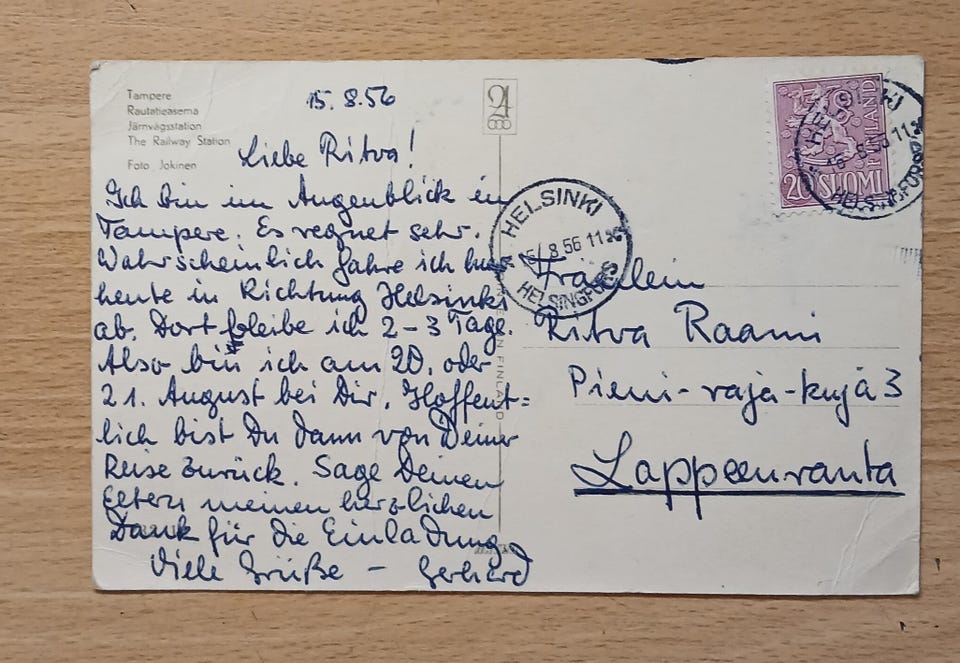 Tampere
Rautatieasema
Järnvägsstation
The Railway Station
Foto Jokinen
15.8.56
Liebe Ritva!
Ich bin im Augenblick in
Tampere. Es regnet sehr.
Wahrscheinlich fahre ich
heute in Richtung Helsinki
ab. Dort bleibe ich 2-3 Tage.
Also bin ich am 20. oder
21. August bei Dir. Hoffent=
lich bist Du dann von Deiner
Reise zurück. Sage Deinen
Eltern meinen herzlichen
Dank für die Einladung
Viele Grüße - Gerhard
IN FINLAND
HELSINKI
8.56 11
HELSINGFORS
20 SUOMI
FINLAND
HELSINKI
8.56 11
HELSINGFORS
Fräulein
Ritva Raami
Pieni-raja-kuja 3
Lappeenranta